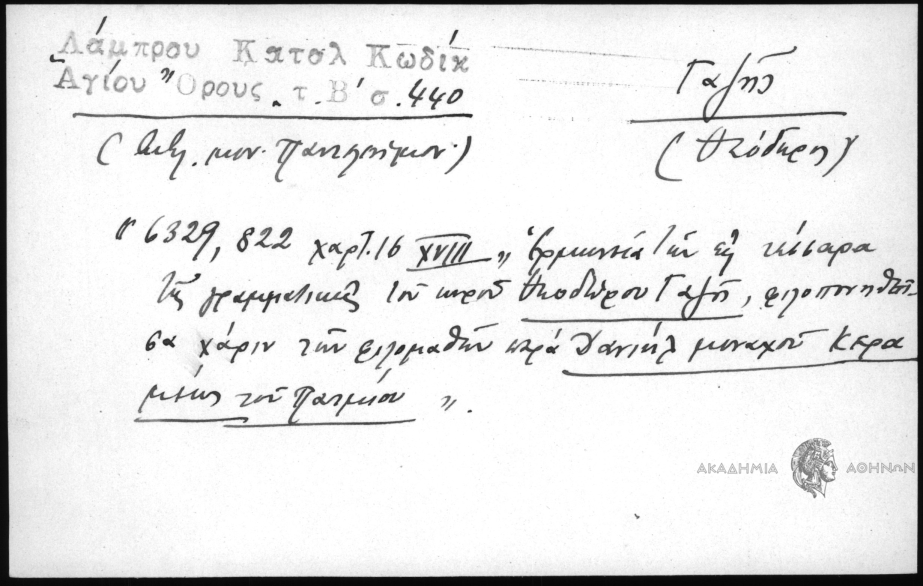 Λάμπρου Κατολ Κωδίκ
Ἁγίου Ὄρους τ. Β' σ. 440
Γαζῆς
(βιβλ. μον. Παντελεήμον.)
(Θεόδωρος)
"6329, 822 χαρτ. 16 XVIII „ Ἑρμηνεία τῶν εἰς τέσσαρα
τῆς γραμματικῆς τοῦ κυροῦ Θεοδώρου Γαζῆ, φιλοπονηθεῖ
σα χάριν τῶν φιλομαθῶν παρά Δανιήλ μοναχοῦ Κερα
μέως τοῦ Πατμίου „.
ΑΚΑΔΗΜΙΑ ΑΘΗΝΩΝ